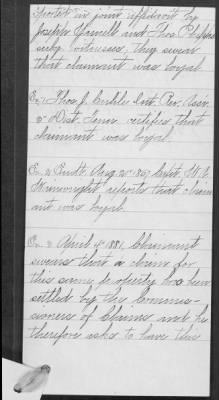 in joint affidavit by
Joseph and Thos.
witnesses, they swear
that claimant was loyal.
Ex. 1 Thos. J. Int. Rev. Assr.
2d Dist. Tenn. certifies that
claimant was loyal.
Ex. 2 Aug. 21 1867 W. A.
Wainwright reports that claim
ant was loyal.
Ex. 3 April 4" 1881, Claimant
swears that a claim for
this same property has been
settled by the Commis-
sioners of Claims and he
therefore asks to have this